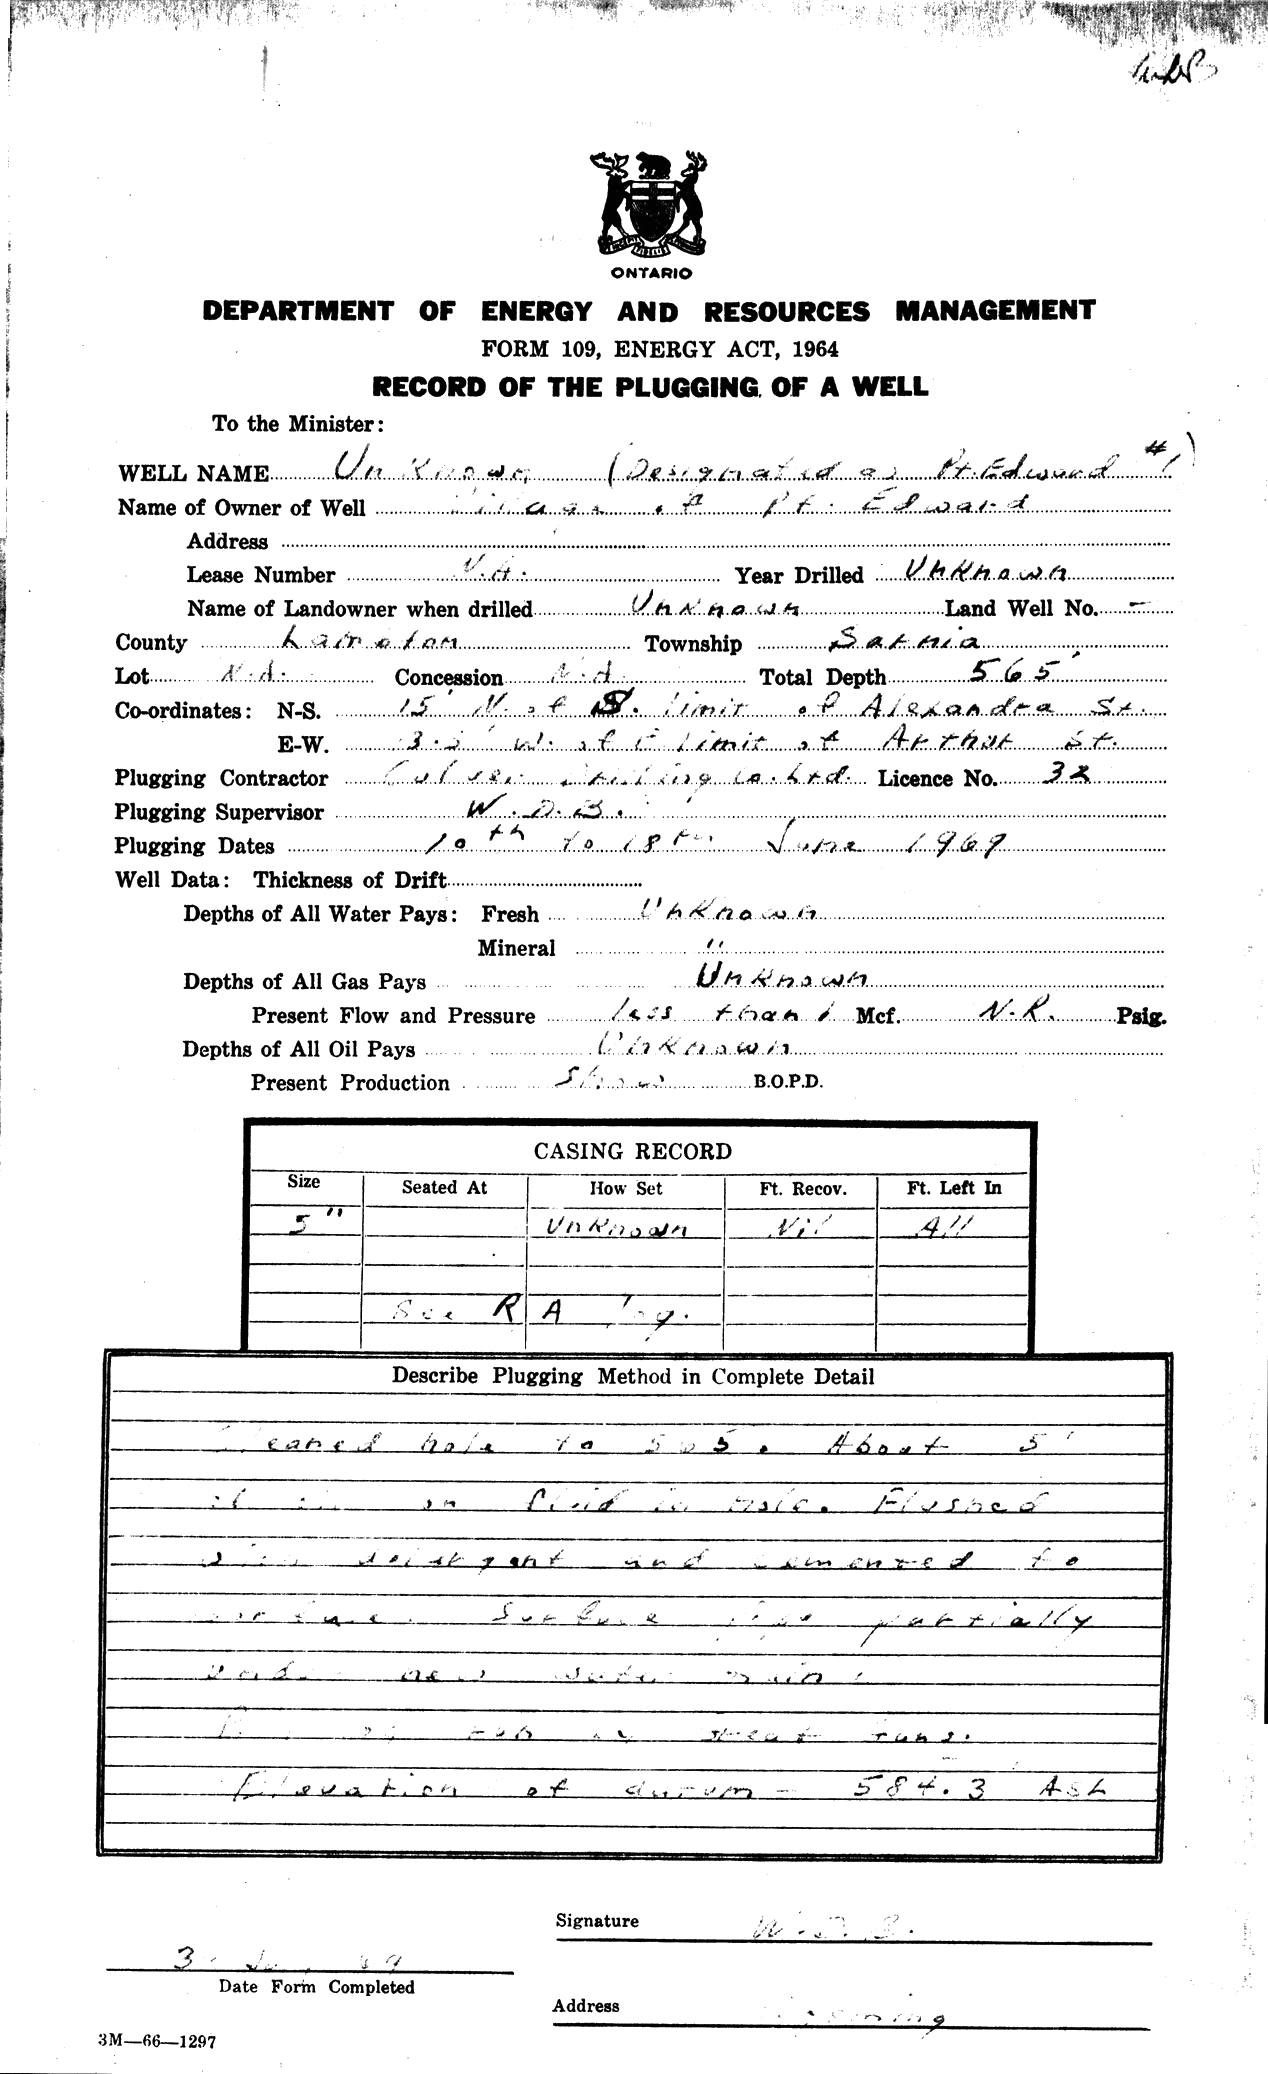 ONTARIO
DEPARTMENT OF ENERGY AND RESOURCES MANAGEMENT
FORM 109, ENERGY ACT, 1964
RECORD OF THE PLUGGING OF A WELL
To the Minister:
WELL NAME Unknown (Designated as Pt. Edward #1)
Name of Owner of Well Village of Pt. Edward
Address
Lease Number N.A. Year Drilled Unknown
Name of Landowner when drilled Unknown Land Well No. -
County Lambton Township Sarnia
Lot N.A. Concession N.A. Total Depth 565'
Co-ordinates: N-S. 15' N. of S. limit of Alexandra St.
E-W. W. of E limit of Arthur St.
Plugging Contractor Culver Drilling Co. Ltd. Licence No. 32
Plugging Supervisor W.D.B.
Plugging Dates 10th to 18th June 1969
Well Data: Thickness of Drift
Depths of All Water Pays: Fresh Unknown
Mineral "
Depths of All Gas Pays Unknown
Present Flow and Pressure less than 1 Mcf. N.R. Psig.
Depths of All Oil Pays Unknown
Present Production Show B.O.P.D.
CASING RECORD
Size Seated At How Set Ft. Recov. Ft. Left In
5" Unknown Nil All
See R A log.
Describe Plugging Method in Complete Detail
Cleaned hole to 565. About 5'
on fluid in hole. Flushed
with detergent and cemented to
surface. Surface pipe partially
under new water main.
run
Elevation of datum - 584.3' ASL
Signature W.D.B.
3 69
Date Form Completed
Address
3M—66—1297